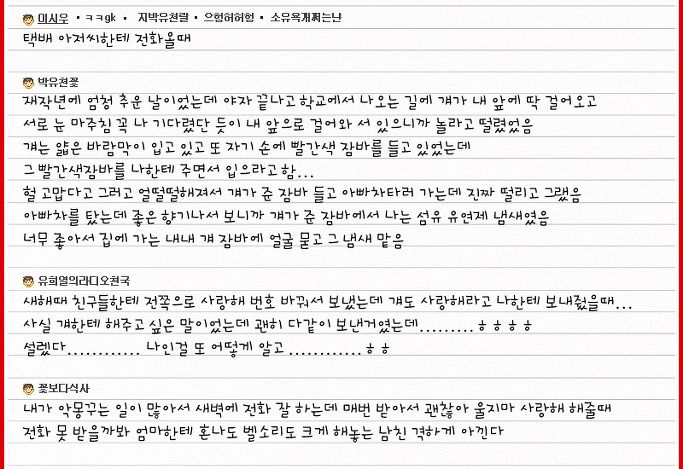 미시우 · ㅋㅋgk · 지박유천릴 · 으헝허허헝 · 소유욕개쩌는냔
택배 아저씨한테 전화올때
박유천꽃
재작년에 엄청 추운 날이었는데 야자 끝나고 학교에서 나오는 길에 걔가 내 앞에 딱 걸어오고
서로 눈 마주침 꼭 나 기다렸단 듯이 내 앞으로 걸어와 서 있으니까 놀라고 떨렸었음
걔는 얇은 바람막이 입고 있고 또 자기 손에 빨간색 잠바를 들고 있었는데
그 빨간색잠바를 나한테 주면서 입으라고 함...
헐 고맙다고 그러고 얼떨떨해져서 걔가 준 잠바 들고 아빠차타러 가는데 진짜 떨리고 그랬음
아빠차를 탔는데 좋은 향기나서 보니까 걔가 준 잠바에서 나는 섬유 유연제 냄새였음
너무 좋아서 집에 가는 내내 걔 잠바에 얼굴 묻고 그 냄새 맡음
유희열의라디오천국
새해때 친구들한테 전쪽으로 사랑해 번호 바꿔서 보냈는데 걔도 사랑해라고 나한테 보내줬을때...
사실 걔한테 해주고 싶은 말이었는데 괜히 다같이 보낸거였는데.........ㅎㅎㅎㅎ
설렜다............ 나인걸 또 어떻게 알고 ............ㅎㅎ
꽃보다식사
내가 악몽꾸는 일이 많아서 새벽에 전화 잘 하는데 매번 받아서 괜찮아 울지마 사랑해 해줄때
전화 못 받을까봐 엄마한테 혼나도 벨소리도 크게 해놓는 남친 격하게 아낀다